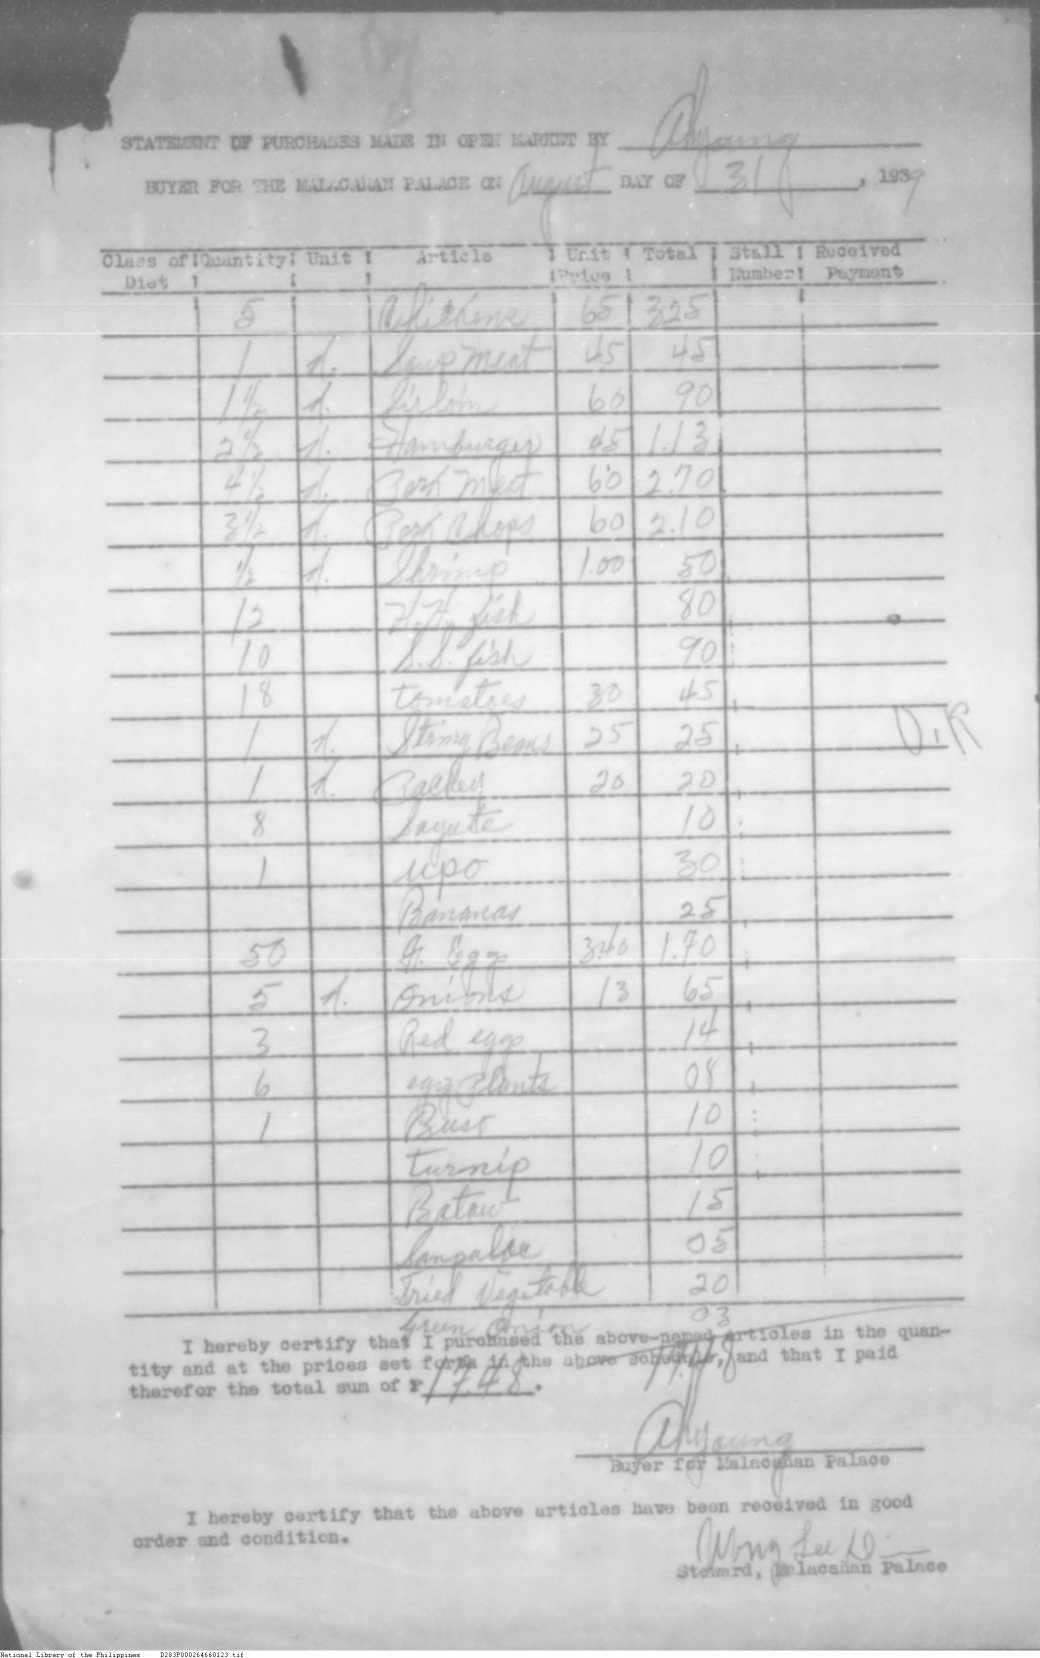 STATEMENT OF PURCHASES MADE IN OPEN MARKET BY Ahyoung
BUYER FOR THE MALACAÑAN PALACE ON August DAY OF 31, 1939
Class of Diet Quantity Unit Article Unit Price Total Stall Number Received Payment
5 Chickens 65 3.25
1 k. Soup Meat 45 45
1 1/2 k. Sirloin 60 90
2 1/2 k. Hamburger 45 1.13
4 1/2 k. Pork Meat 60 2.70
3 1/2 k. Pork Chops 60 2.10
1/2 k. Shrimp 1.00 50
12 H.H. fish 80
10 S.S. fish 90
18 tomatoes 30 45
1 k. String Beans 25 25
O.K
1 k. 20 20
8 Sayute 10
1 upo 30
Bananas 25
50 Egg 3.40 1.70
5 k. Onions 13 65
3 Red eggs 14
6 egg plants 08
1 10
turnip 10
Batau 15
Sampaloc 05
Fried Vegetable 20
Green Onion 03
I hereby certify that I purchased the above-named articles in the quan-
tity and at the prices set forth in the above schedule, and that I paid
therefor the total sum of ₱ 17.48.
17.48
Ahyoung
Buyer for Malacañan Palace
I hereby certify that the above articles have been received in good
order and condition.
Wong Lee
Steward, Malacañan Palace
National Library of the Philippines D283P000264660123.tif